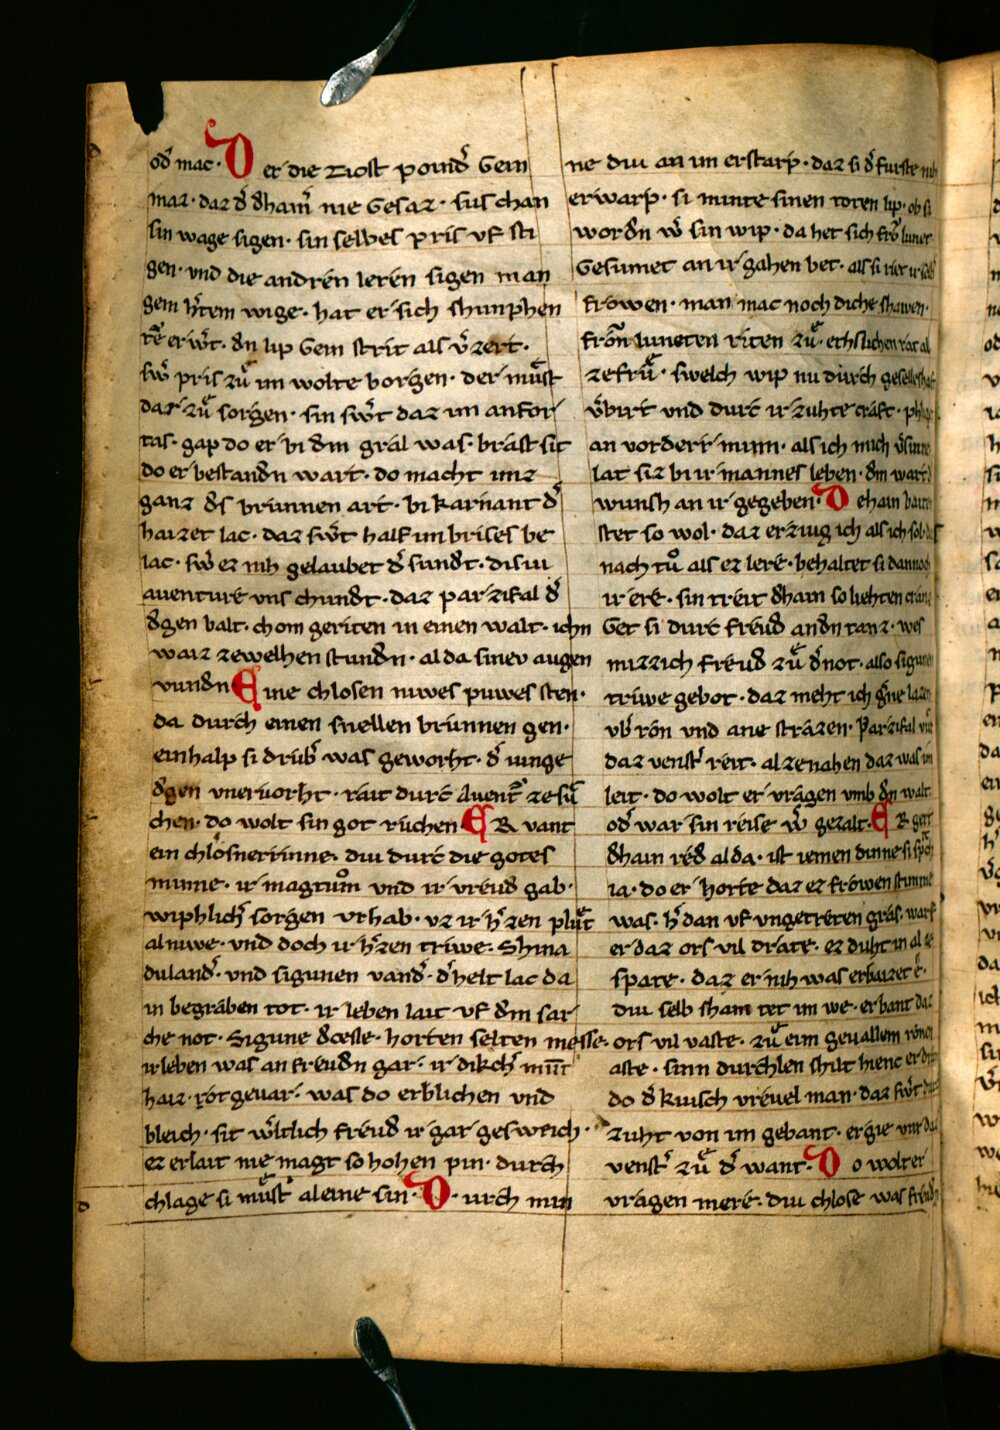 od̾ mac · D er die tiost poind̾ Gein
maz · daz d̾ dham̄ nie Gesaz · sus chan
sin wage sigen · sin selbes pris vf sti
gen · vnd die andren leren sigen man
gem h̾tem wige · hat er sich shunphen
er w̾t · dn lip Gem strit als v̾zert ·
sw̾ pris zuͦ im wolte borgen · der muͤst
daz zuͦ sorgen · sin sw̾t daz im anfor
tas · gap do er bi dm gral was · brast sit
do er bestandn wart · do macht imz
ganz ds brunnen art · bi karnant d̾
haizet lac · daz sw̾t half im brises be
lac · sw̾ ez nih gelaubet d̾ sundt · disiu
auenture vns chundt · daz parzifal d̾
dgen balt · chom geriten in einen walt · ichn
waiz zewelhen stundn · alda sinev augen
vundn E ine chlosen niwes puwes sten ·
da durch einen snellen brunnen gen ·
einhalp si drub̾ was geworht · d̾ iunge
dgen vneruorht · rait durc Auent̾ ze suͤ
chen · do wolt sin got ruchen E R vant
ein chlosnerinne · diu durc die gotes
minne · ir magtuͦm vnd ir vreud gab ·
wiphlich̾ sorgen vrhab · vz ir h̾zen pluͤt
alniwe · vnd doch ir h̾zen triwe · Shina
duland̾ · vnd sigunen vand̾ · d̾ helt lac da
in begraben tot · ir leben lait vf dm sar
che not · Sigune dcesle · horten selten messe ·
ir leben was an freudn gar · ir dikch̾ munt
haiz · rotgeuar · was do erblichen vnd
bleich · sit w̾ltlich freud ir gar gesweich ·
ez erlait nie magt so hohen pin · durch
chlage si muͤst̾ aleine sin · D · urch min
ne diu an im erstarp · daz si d̾ furste nih
erwarp · si minte sinen toten lip · ob si
wordn w̾ sin wip · da het sich fro̾ lunet
Gesumet an ir gahen bet · als si riet ir selb
frowen · man mac noch diche shawen ·
fron luneten riten zuͦ · ethslichen rat al
ze fruͤ · swelch wip nu durch geselleshaf
v̾birt vnd durc ir zuhte craft · phl
an vordert minn · als ich mich v̾sinne
lat siz bi ir mannes leben · dm wart
wunsh an ir gegeben · D ehain baite
stet so wol · daz erziug ich als ich sol · d
nach tuͦ als ez lere · behaltet si dannoch
ir ere · sin treit dhain so liehten cranz
Get si durc freud andn tanz · wes
mizzich freud zuͦ d̾ not · also sigune
triwe gebot · daz meht ich g̾ne lazen
vb̾ ron vnd ane strazen · Parzifal vur
daz venst̾ reit · al ze nahen daz was im
leit · do wolt er vragen vmb dn walt
od̾ war sin reise w̾ gezalt · E R gert
dhain red alda · ist iemen dinne si sp̾ch
ia · do er horte daz ez frowen stimme
was · h̾dan vf vngetreten gras · warf
er daz ors vil drate · ez duht in al ze
spate · daz er nih was erbaizet e̾ ·
diu selb sham tet im we · er bant daz
ors vil vaste · zuͦ eim geuallem ronen
aste · sinn durchlen shilt hienc er
do d̾ kiusch vreuel man · daz sw̾t
zuht von im gebant · er gie vur daz
venst̾ zuͦ d̾ want · D o wolter
vragen mere · diu chlose was freudn